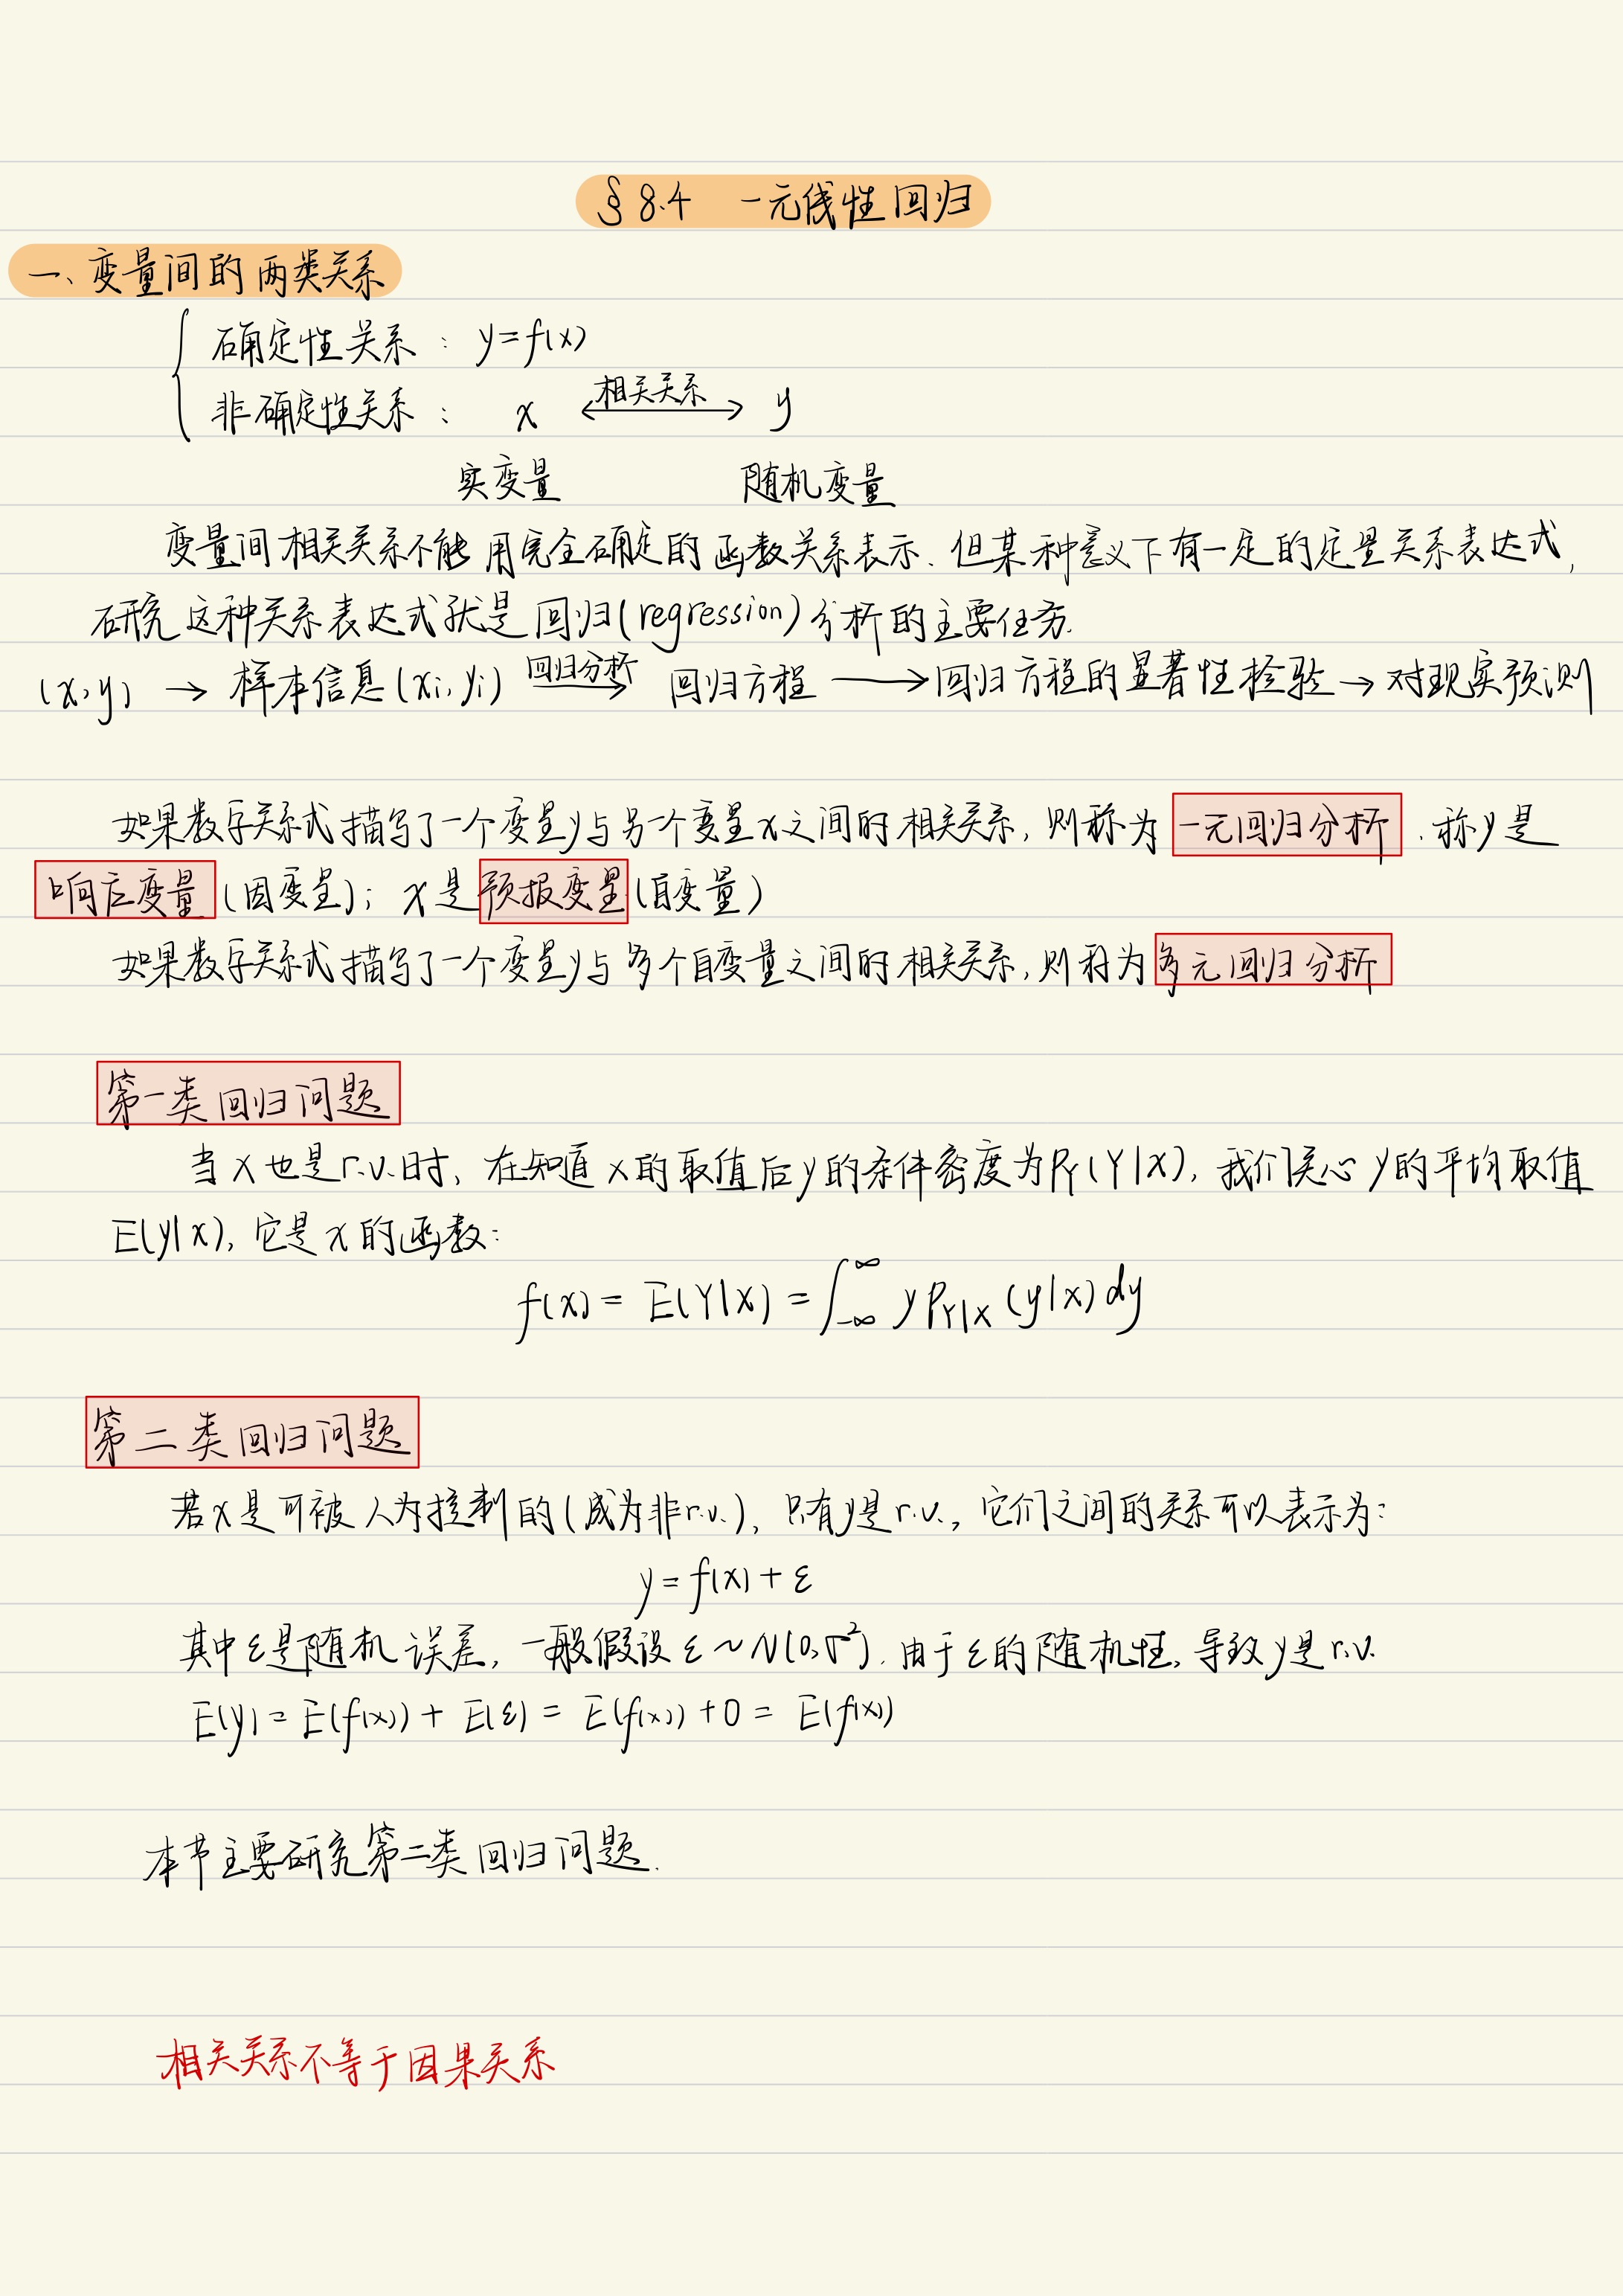 §8.4 一元线性回归
一、变量间的两类关系
确定性关系： y=f(x)
非确定性关系： x ⟷ y 相关关系
实变量 随机变量
变量间相关关系不能用完全确定的函数关系表示.但某种意义下有一定的定量关系表达式,
研究这种关系表达式就是回归(regression)分析的主要任务.
(x,y) → 样本信息(xi,yi) 回归分析→ 回归方程 → 回归方程的显著性检验 → 对现实预测
如果数学关系式描写了一个变量y与另一个变量x之间的相关关系,则称为一元回归分析.称y是
响应变量(因变量); x是预报变量(自变量)
如果数学关系式描写了一个变量y与多个自变量之间的相关关系,则称为多元回归分析
第一类回归问题
当x也是r.v.时、在知道x的取值后y的条件密度为P_Y(Y|X),我们关心y的平均取值
E(y|x),它是x的函数:
f(x) = E(Y|X) = ∫_{-∞}^{∞} y P_{Y|X}(y|x) dy
第二类回归问题
若x是可被人为控制的(成为非r.v.)、只有y是r.v.,它们之间的关系可以表示为:
y = f(x) + ε
其中ε是随机误差,一般假设ε~N(0,σ²).由于ε的随机性,导致y是r.v.
E(y) = E(f(x)) + E(ε) = E(f(x)) + 0 = E(f(x))
本节主要研究第二类回归问题.
相关关系不等于因果关系